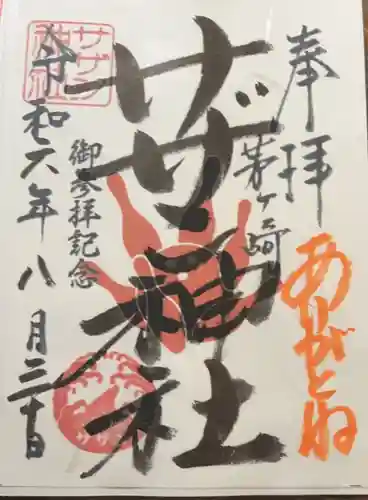 奉拝
ありがとね
茅ヶ崎
サザン神社
御参拝記念
令和六年八月三十日
サザン
神社